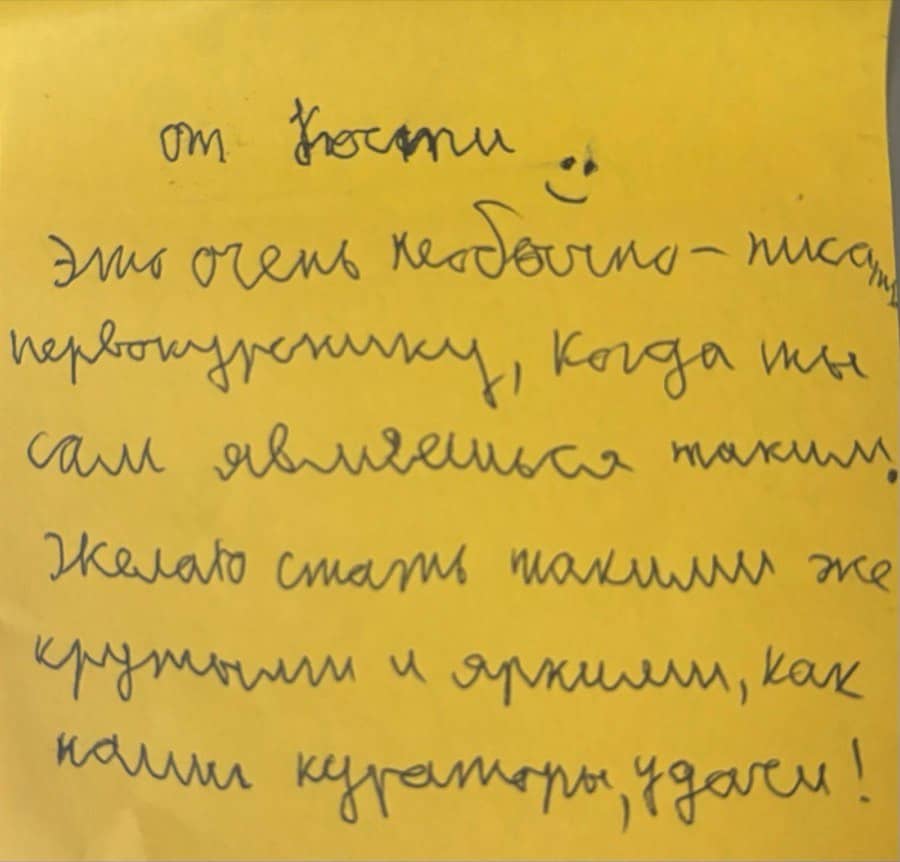 от Кости
это очень необычно – писать
первокурснику, когда ты
сам являешься таким.
Желаю стать такими же
крутыми и яркими, как
наши кураторы, удачи!